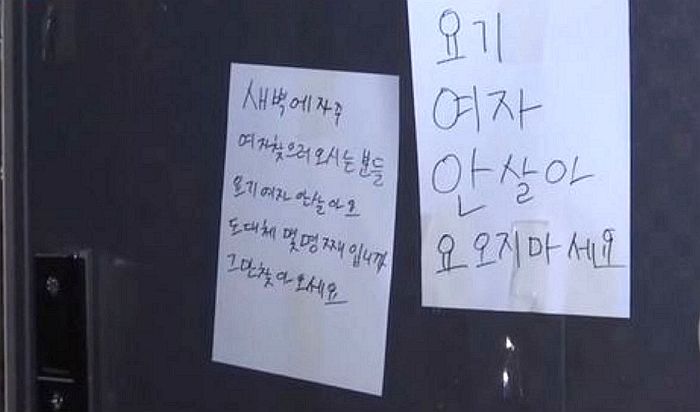 새벽에 자주
여자찾으러 오시는 분들
요기 여자 안살아요
도대체 몇명째 입니까
그만찾아오세요
요기
여자
안살아
요 오지마세요